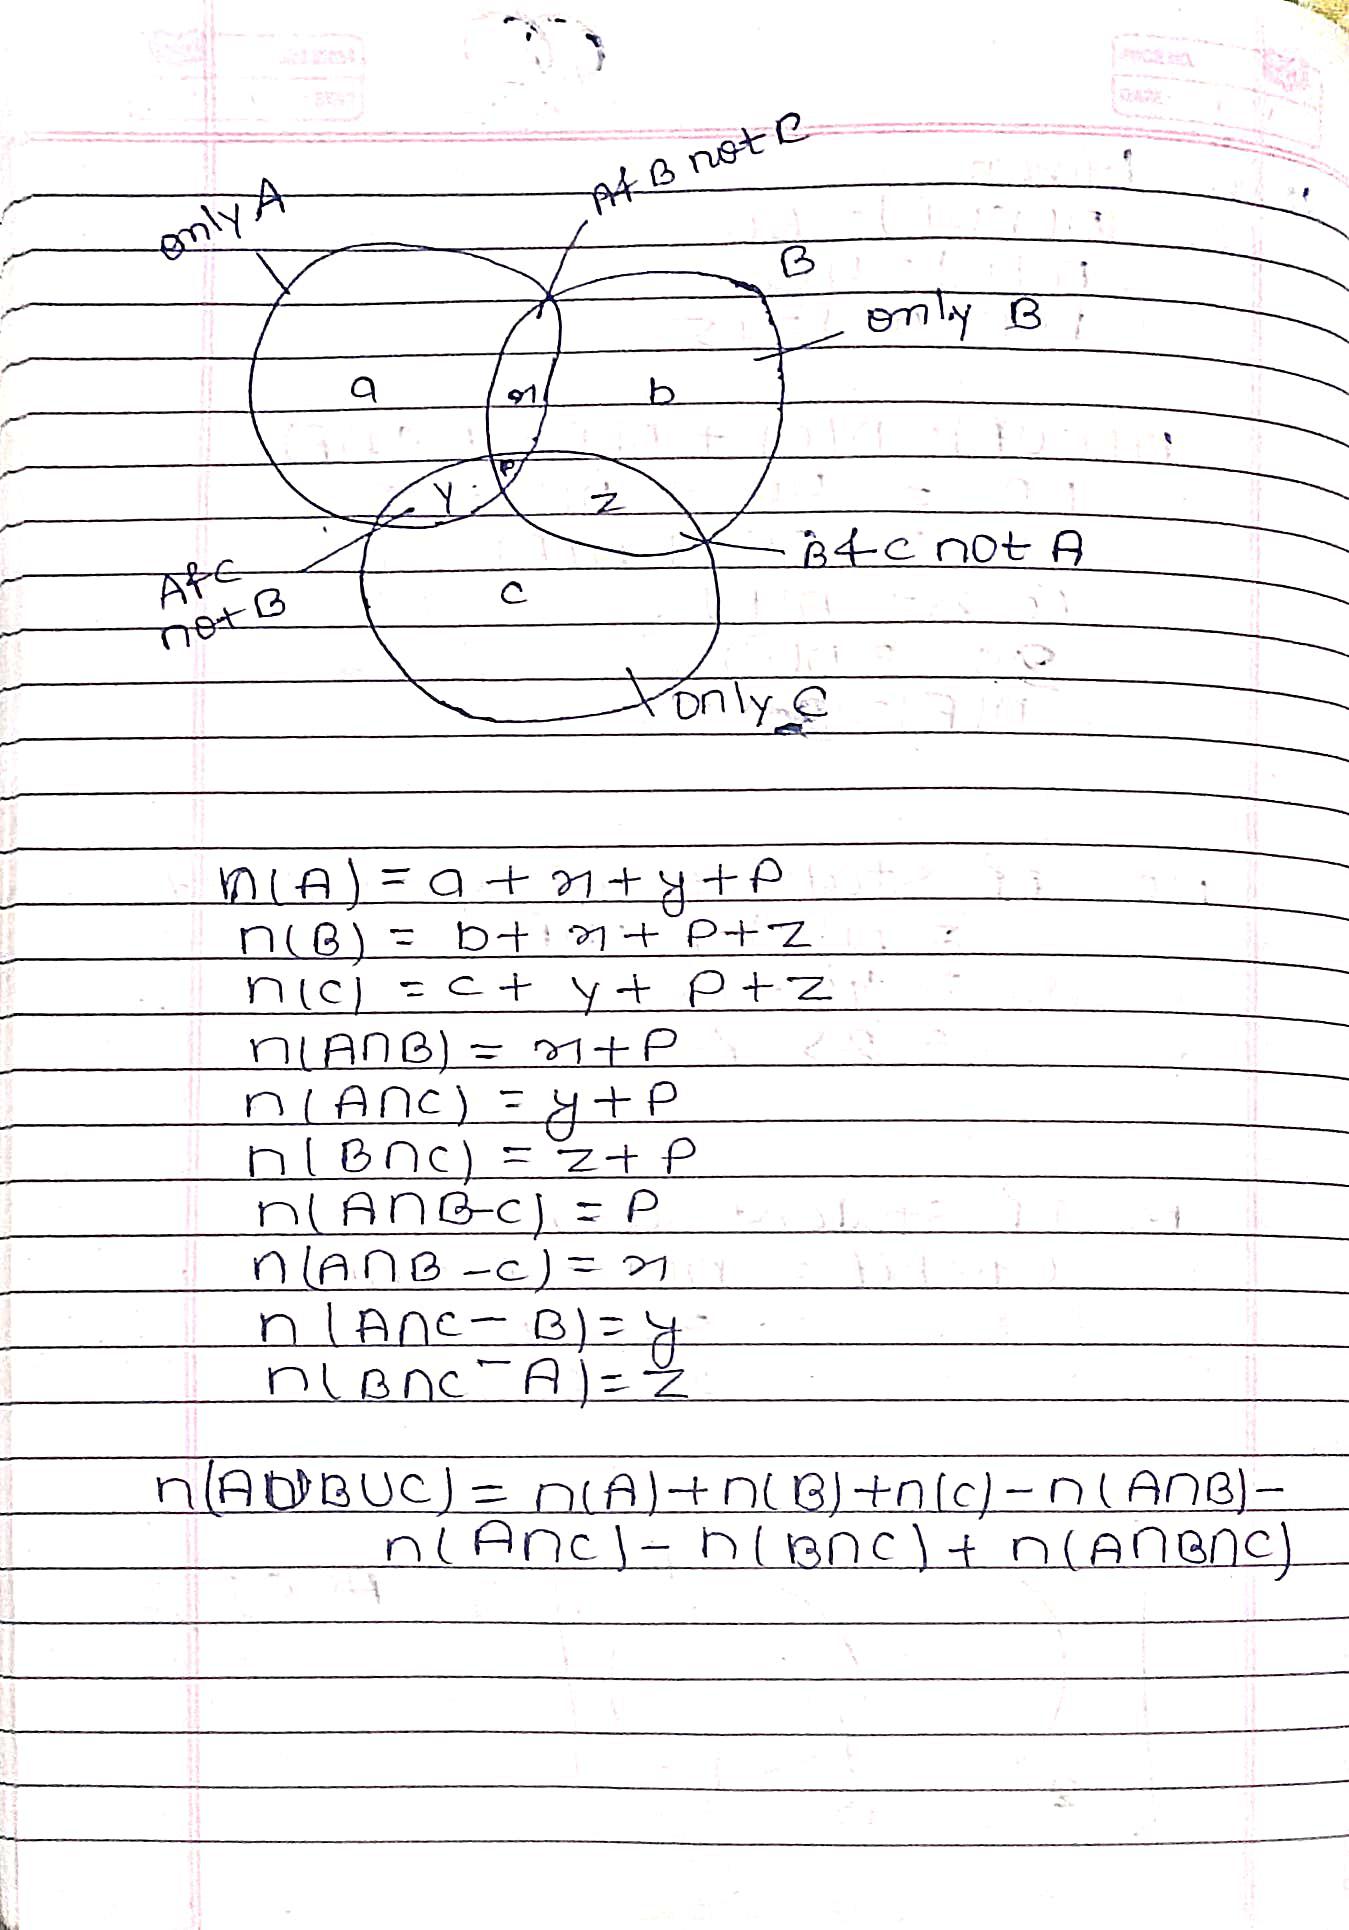 only A
A & B not C
B
only B
a
x
b
p
y
z
A & C
not B
B & C not A
c
only C
n(A) = a + x + y + p
n(B) = b + x + p + z
n(C) = c + y + p + z
n(A∩B) = x + p
n(A∩C) = y + p
n(B∩C) = z + p
n(A∩B-C) = p
n(A∩B - C) = x
n(A∩C - B) = y
n(B∩C - A) = z
n(A∪B∪C) = n(A) + n(B) + n(C) - n(A∩B) -
n(A∩C) - n(B∩C) + n(A∩B∩C)